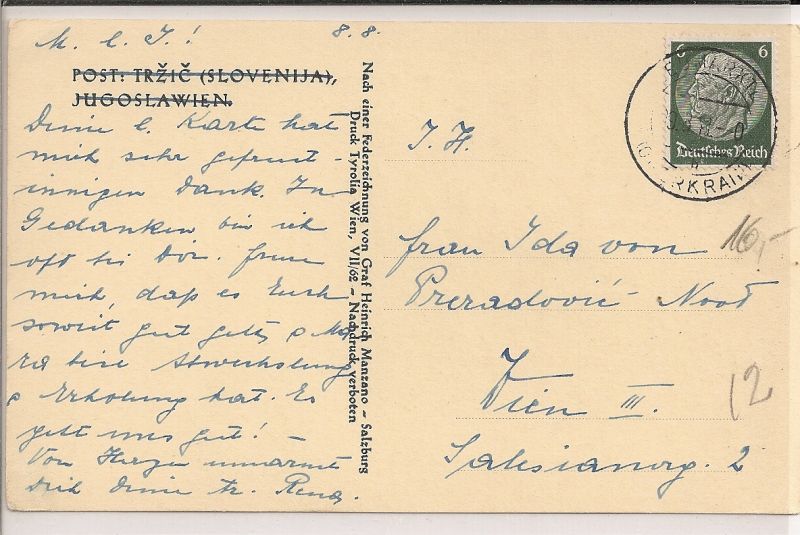 M. l. I.! 8.8.
POST: TRŽIČ (SLOVENIJA),
JUGOSLAWIEN.
Deine l. Karte hat
mich sehr gefreut -
innigen Dank. In
Gedanken bin ich
oft bei Dir. Freue
mich, daß es Euch
soweit gut geht, &
bisl Abwechslung
& Erholung hat. Es
geht uns gut! -
Von Herzen umarmt
Dich Deine tr. Rena.
Nach einer Federzeichnung von Graf Heinrich Manzano – Salzburg
Druck Tyrolia Wien, VII/62 – Nachdruck verboten
6 6
Deutsches Reich
I. H.
Frau Ida von
Preradović-Noot
Wien III.
Salesianerg. 2
16,-
12